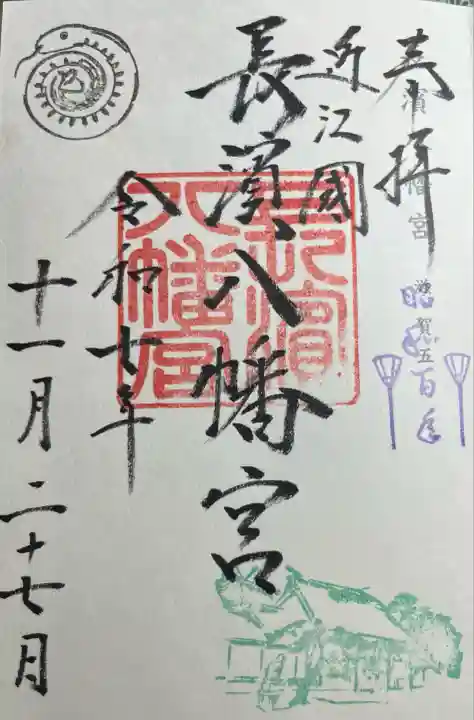 奉拝
昭和百年
近江國
長濱八幡宮
長濱
八幡宮
令和七年
十一月二十七日
巳